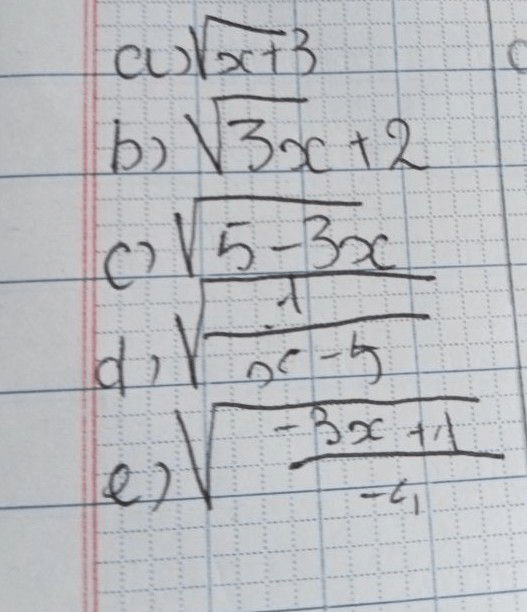 a) √x+3
b) √3x + 2
c) √5-3x
d) √1/x-5
e) √-3x+1/-4